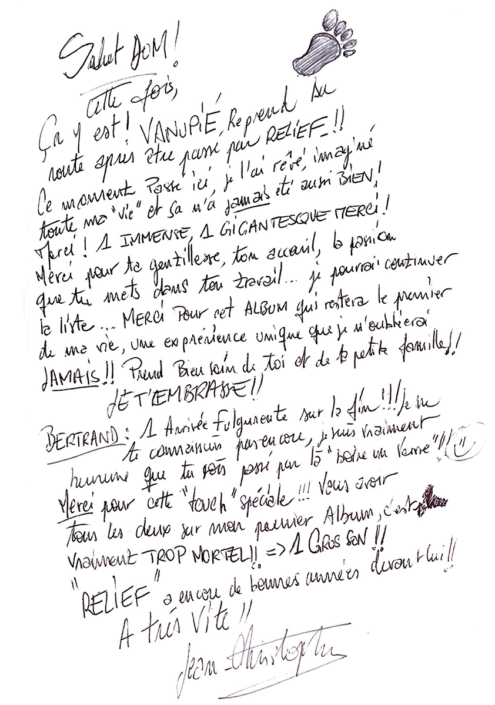 Salut DOM!
Cette fois,
ça y est! VANUPIÉ, Reprend sa
route après être passé par RELIEF!!
Ce moment Passé ici, je l'ai rêvé, imaginé
toute ma "vie" et ça n'a jamais été aussi BIEN!
Merci! 1 IMMENSE, 1 GIGANTESQUE MERCI!
Merci pour ta gentillesse, ton accueil, la passion
que tu mets dans ton travail... je pourrai continuer
la liste... MERCI Pour cet ALBUM qui restera le premier
de ma vie, une expérience unique que je n'oublierai
JAMAIS!! Prend Bien soin de toi et de ta petite famille!!
JE T'EMBRASSE!!
BERTRAND: 1 Arrivée Fulgurente sur la fin!!! Je ne
te connaissais pas encore, je suis vraiment
heureux que tu sois passé par là "boire un verre"!!
Merci pour cette "touch" spéciale!!! Vous avoir
tous les deux sur mon premier Album, c'est
vraiment TROP MORTEL!! => 1 GROS SON!!
"RELIEF" a encore de bonnes années devant lui!!
A très vite!!
Jean-Christophe